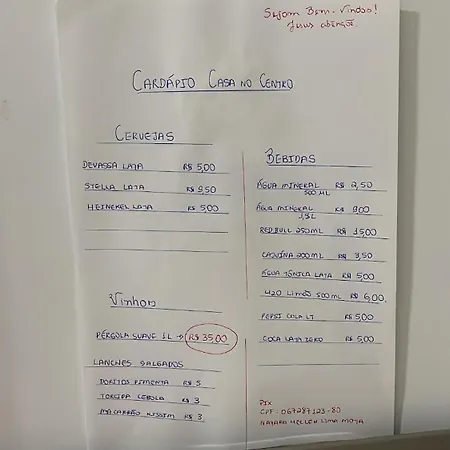 Sejam Bem-Vindos!
Jesus abençoe.
CARDÁPIO CASA NO CENTRO
CERVEJAS
DEVASSA LATA R$ 5,00
STELLA LATA R$ 9,50
HEINEKEL LATA R$ 5,00
Vinhos
PÉRGOLA SUAVE 1L → R$ 35,00
LANCHES SALGADOS
DORITOS PIMENTA R$ 5
TORCIDA CEBOLA R$ 3
MACARRÃO NISSIM R$ 3
BEBIDAS
ÁGUA MINERAL R$ 2,50
500 ML
ÁGUA MINERAL R$ 9,00
1,5L
RED BULL 250ML R$ 15,00
CAJUÍNA 200ML R$ 3,50
ÁGUA TÔNICA LATA R$ 5,00
H2O LIMÃO 500ML R$ 6,00
PEPSI COLA LT R$ 5,00
COCA LATA ZERO R$ 5,00
PIX
CPF: 067287123-80
NAIARA HELLEN LIMA MOTA